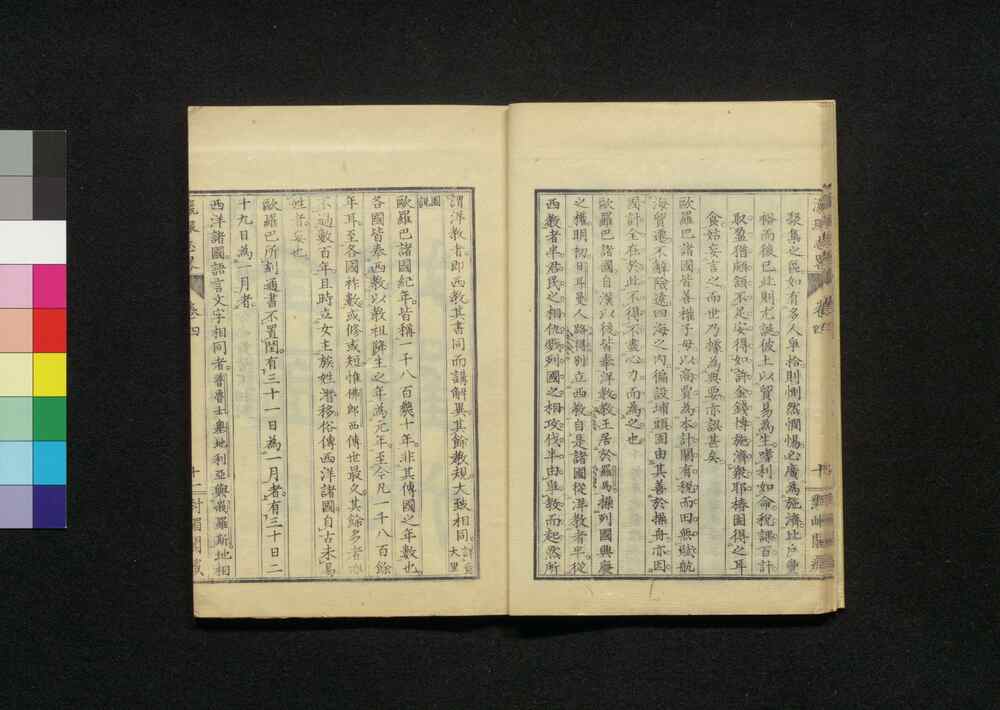 聚集之區如有多人單拾則惻然憫惕必廣為施濟比戶豐
裕而後已此則尤誕彼土以貿易為生嗜利如命稅課百計
取盈猶頗額不足安得如許金錢博施濟衆耶椿園得之耳
食姑妄言之而世乃據為典要亦誤甚矣
歐羅巴諸國皆善權子母以商賈為本計關有稅而田無賦航
海貿遷不辭險遠四海之內徧設埔頭固由其善於操舟亦因
國計全在於此不得不盡心力而為之也
歐羅巴諸國自漢以後皆奉洋教教王居於羅馬操列國興廢
之權明初日耳曼人路得別立西教自是諸國從洋教者半從
西教者半君民之相仇列國之相攻伐半由爭教而起然所
謂洋教者即西教其書同而講解異其餘教規大致相同
圖說
歐羅巴諸國紀年皆稱一千八百幾十年非其傳國之年數也
各國皆奉西教以教祖降生之年為元年至今凡一千八百餘
年耳至各國祚數或修或短惟佛郎西傳世最久其餘多者
不過數百年且時立女主族姓潛移俗傳西洋諸國自古未易
姓者妄也
歐羅巴所刱通書不置閏有三十一日為一月者有三十日二
十九日為一月者
西洋諸國語言文字相同者普魯士奧地利亞與峩羅斯地相
卷四
卷四